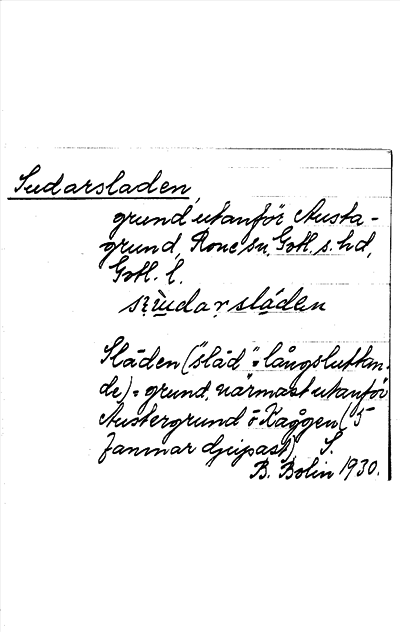 Sudarsladen,
grund utanför Austa-
grund, Rone sn, Gotl. s. hd,
Gotl. l.
sladen
Sladen ("slad" = långsluttan-
de) = grund, närmast utanför
Austergrund ö Kaggen (5
famnar djupast) S.
B. Bolin 1930.